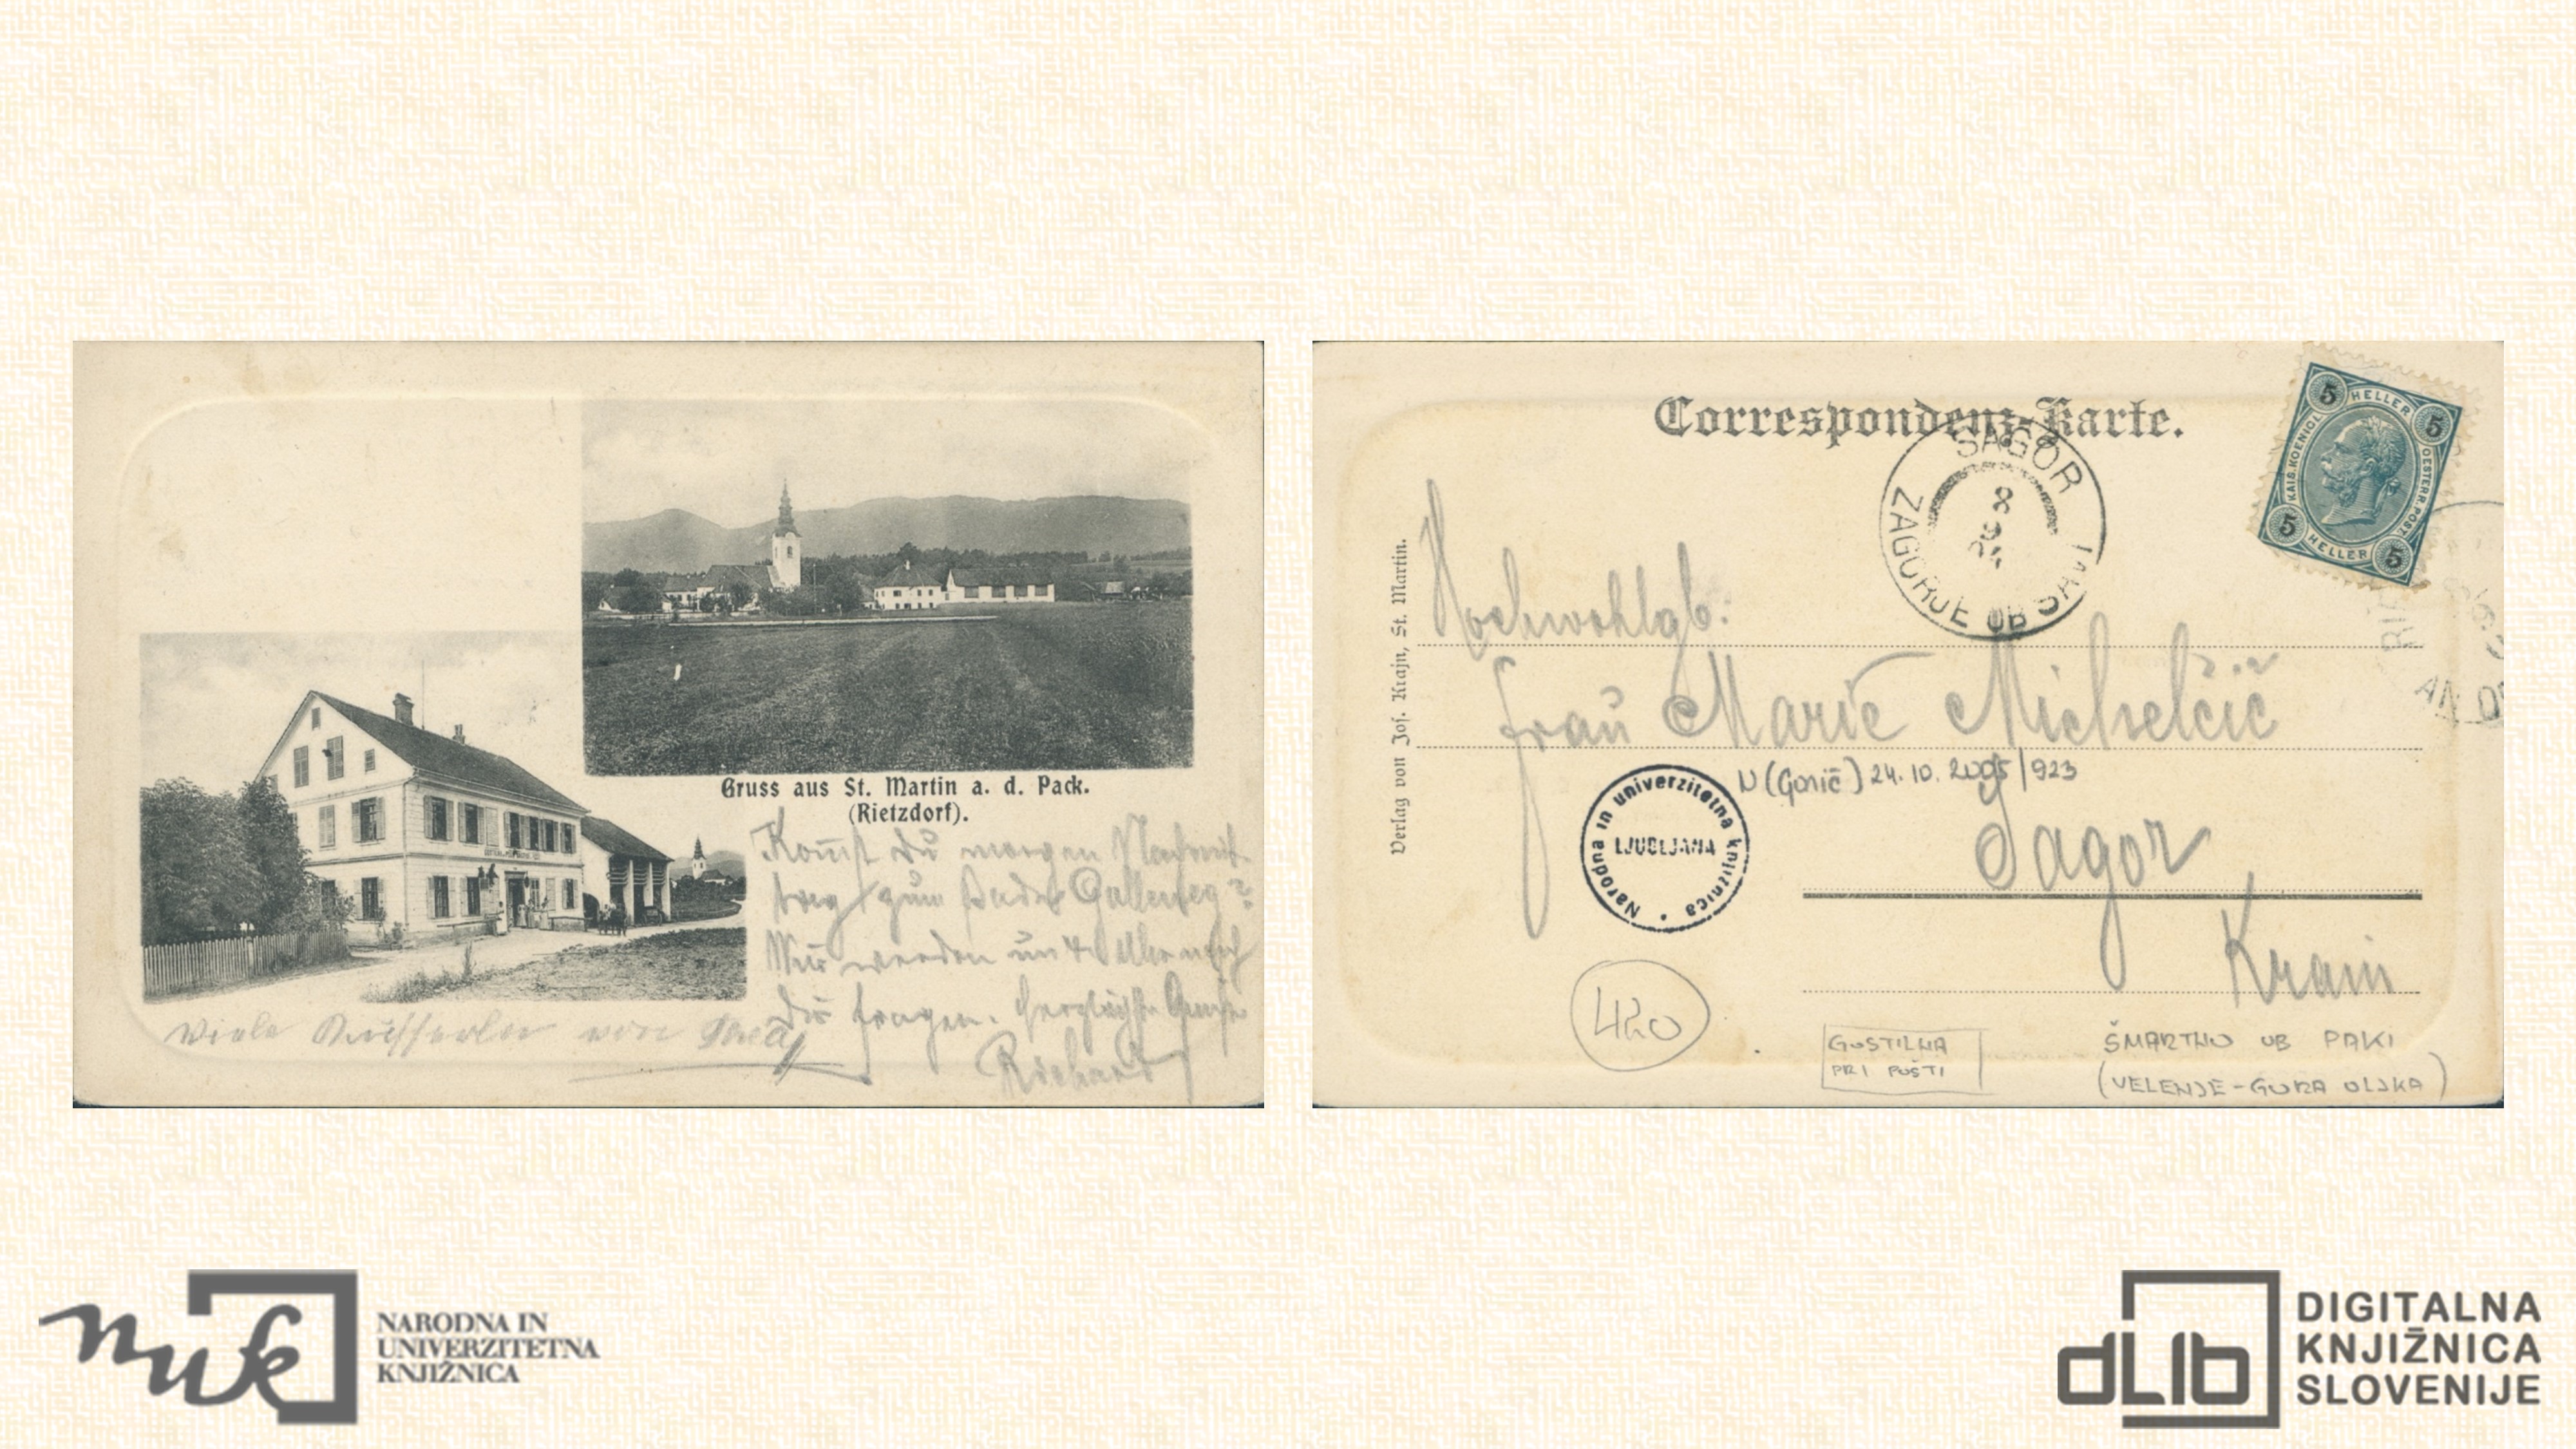 Gruss aus St. Martin a. d. Pack.
(Rietzdorf).
Kom̅st du morgen Nachmit
tag zum Bade Gallenegg?
Wir werden um 4 Uhr nach
Dir fragen. Herzlichste Grüße
Richard
Viele Busserln von
Correspondenz-Karte.
SAGOR
ZAGORJE OB SAVI
5 HELLER 5
KAIS. KOENIGL. OESTERR. POST
5 HELLER 5
Verlag von Jos. Krajn, St. Martin.
Hochwohlgb:
Frau Marie Michelčič
N (Gorič) 24. 10. 2005/923
Narodna in univerzitetna knjižnica
LJUBLJANA
Sagor
Krain
420
GOSTILNA
PRI POŠTI
ŠMARTNO OB PAKI
(VELENJE-GORA OLJKA)
nuk
NARODNA IN
UNIVERZITETNA
KNJIŽNICA
dLib
DIGITALNA
KNJIŽNICA
SLOVENIJE